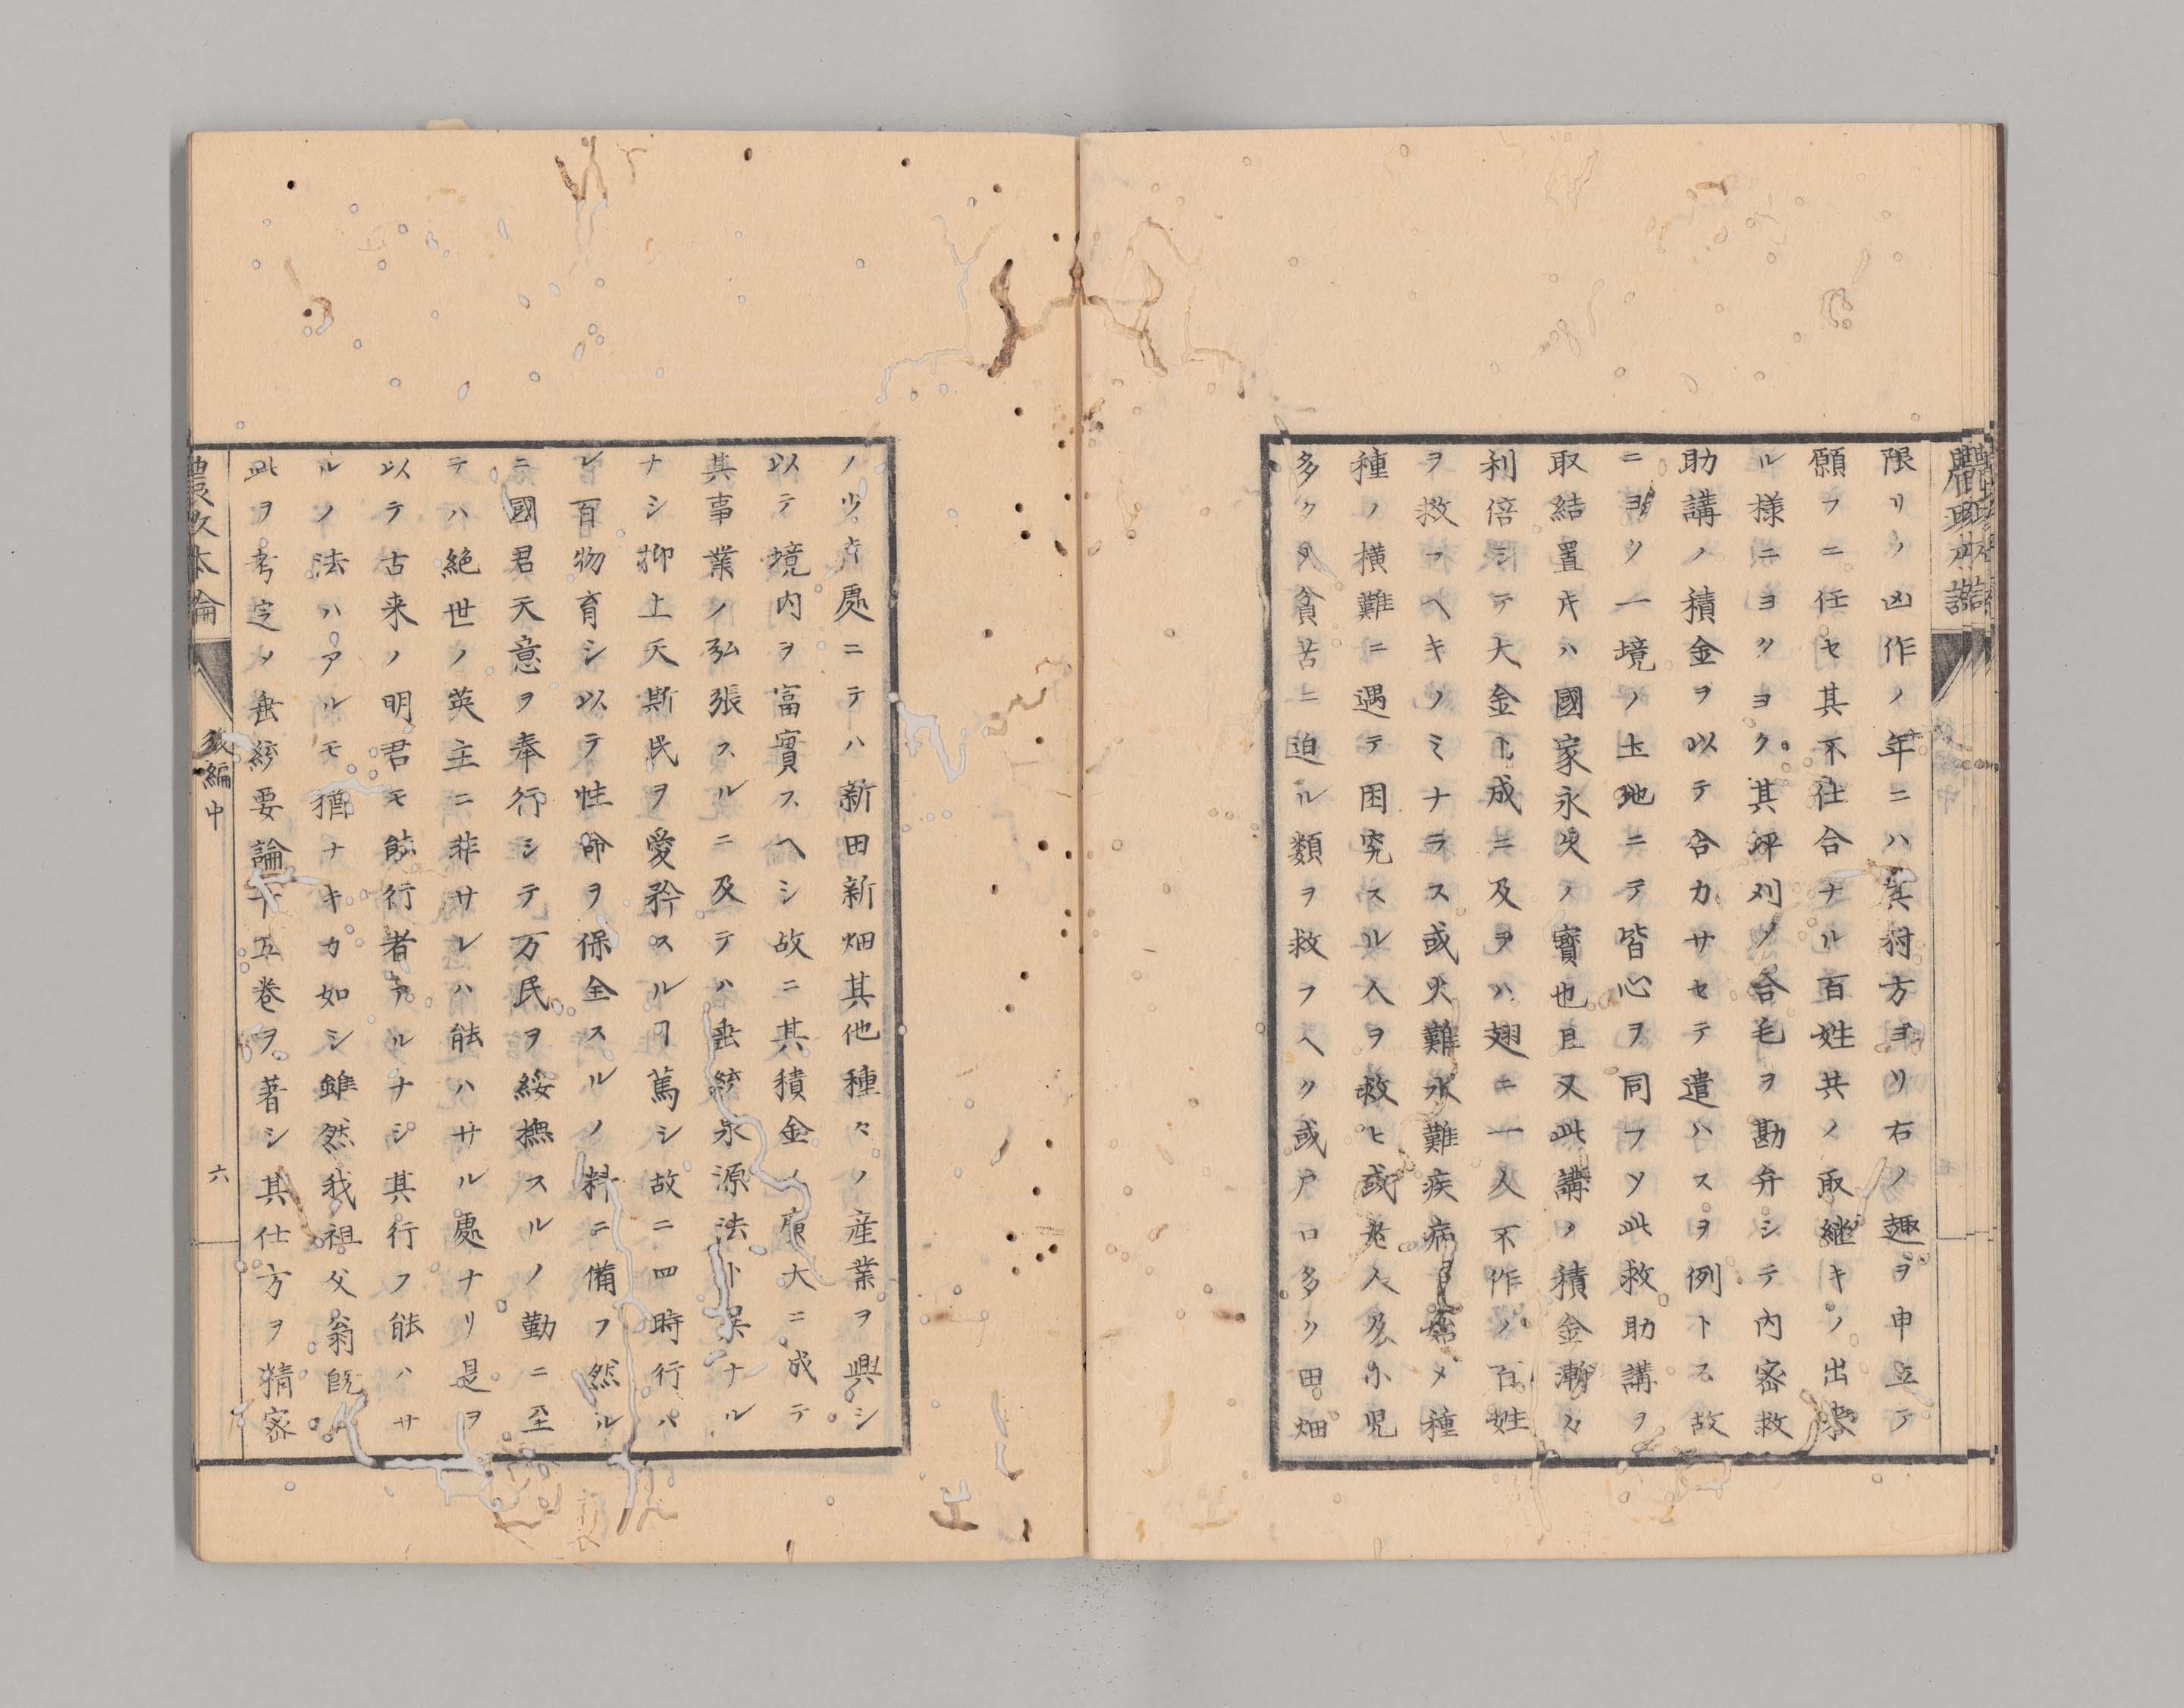 限リノ凶作ノ年ニハ其村方ヨリ右ノ趣ヲ申立テ
願フニ任セ其不仕合ナル百姓共ノ取継キノ出
ル様ニヨクヨク其坪刈ノ合毛ヲ勘弁シテ内密救
助講ノ積金ヲ以テ合力サセテ遣ハスヲ例トス故
ニヨク一境ノ土地ニテ皆心ヲ同フシ此救助講ヲ
取結置キハ國家永久ノ寳也且又此講ノ積金漸々
利倍シテ大金ト成ニ及ヲハ翅ニ一人不作ノ百姓
ヲ救フヘキノミナラス或火難水難疾病ヲ始メ種
種ノ横難ニ遇テ困究スル人ヲ救ヒ或老人及小児
多クノ貧苦ニ迫ル類ヲ救フヘク或戸口多ク田畑
ノ少キ處ニテハ新田新畑其他種々ノ産業ヲ興シ
以テ境内ヲ富實スヘシ故ニ其積金ノ廣大ニ成テ
其事業ノ弘張スルニ及テハ垂統永源法ト異ナル
ナシ抑上天斯民ヲ愛矜スルヿ篤シ故ニ四時行ハ
レ百物育シ以テ性命ヲ保全スルノ料ニ備フ然ル
ニ國君天意ヲ奉行シテ万民ヲ綏撫スルノ勤ニ至
テハ絶世ノ英主ニ非サレハ能ハサル處ナリ是ヲ
以テ古来ノ明君モ能行者アルナシ其行フ能ハサ
ルノ法ハアルモ猶ナキカ如シ雖然我祖父翁既
此ヲ考定メ垂統要論十五巻ヲ著シ其仕方ヲ精密
農政本論
弐編中
六